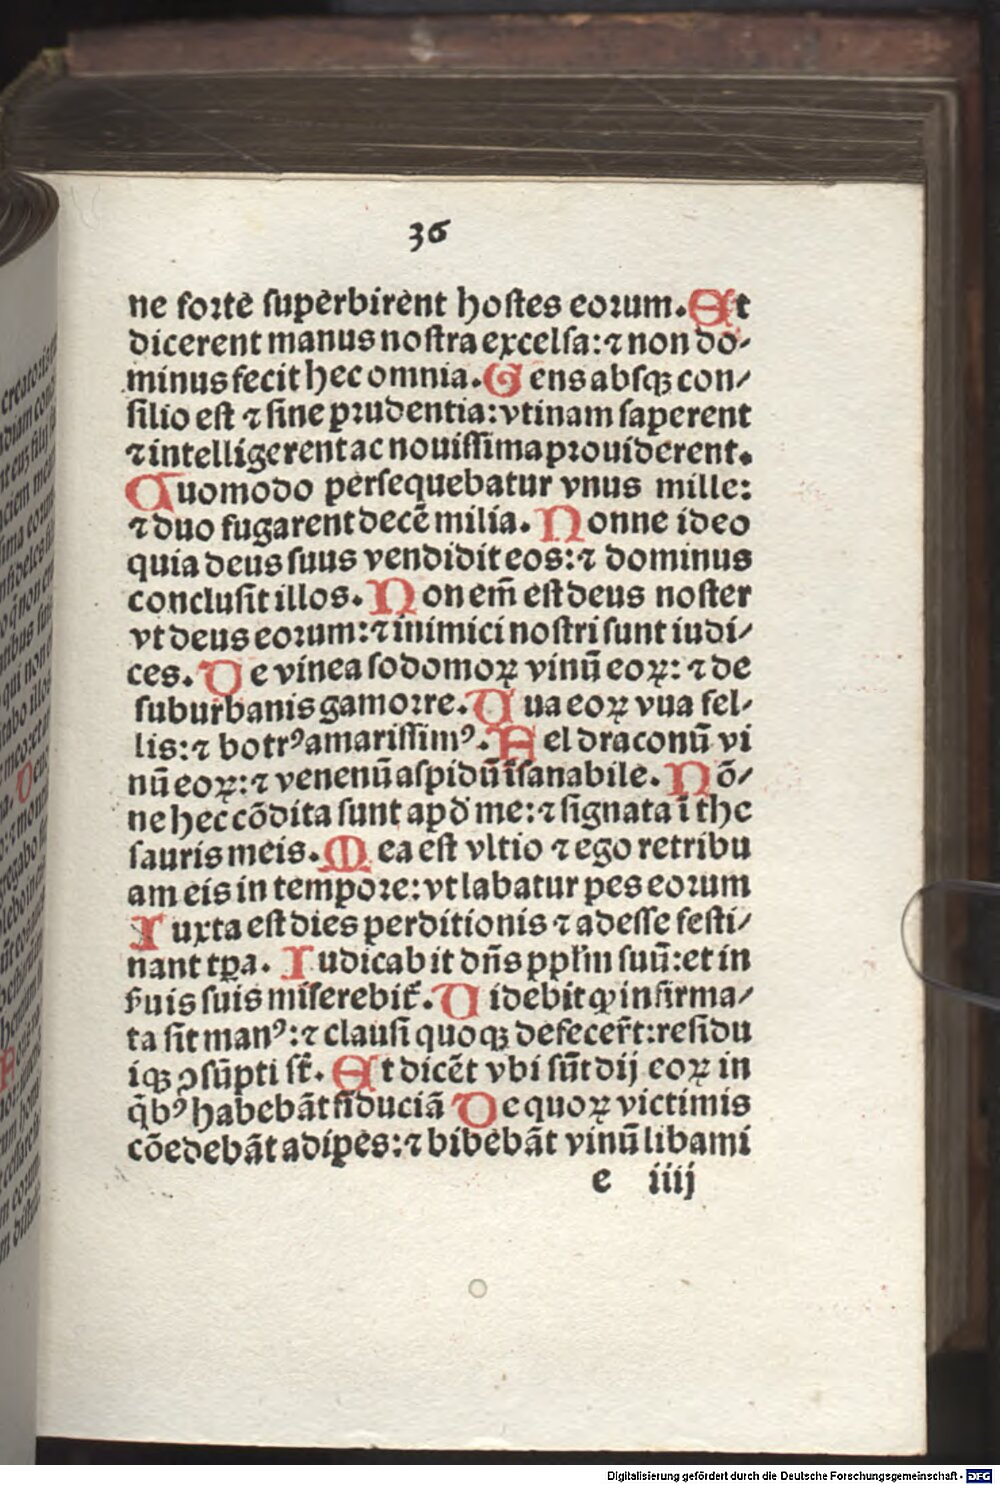 36
ne forte superbirent hostes eorum. Et
dicerent manus nostra excelsa: ⁊ non do⸗
minus fecit hec omnia. Gens absqꝫ con⸗
silio est ⁊ sine prudentia: vtinam saperent
⁊ intelligerent ac nouissima prouiderent.
Quomodo persequebatur vnus mille:
⁊ duo fugarent decē milia. Nonne ideo
quia deus suus vendidit eos: ⁊ dominus
conclusit illos. Non em̄ est deus noster
vt deus eorum: ⁊ inimici nostri sunt iudi⸗
ces. De vinea sodomoꝝ vinū eoꝝ: ⁊ de
suburbanis gamorre. Uua eoꝝ vua fel⸗
lis: ⁊ botrꝰ amarissimꝰ. Fel draconū vi
nū eoꝝ: ⁊ venenū aspidū īsanabile. Nō⸗
ne hec cōdita sunt apd̕ me: ⁊ signata ī the
sauris meis. Mea est vltio ⁊ ego retribu
am eis in tempore: vt labatur pes eorum
Iuxta est dies perditionis ⁊ adesse festi⸗
nant tꝑa. Iudicabit dn̄s ppl̕m suū: et in
s̕uis suis miserebit̕. Uidebit ꝙ infirma⸗
ta sit manꝰ: ⁊ clausi quoqꝫ defecer̄t: residu
iqꝫ ↄsūpti st̄. Et dicēt vbi sūt dij eoꝝ in
q̄bꝰ habebāt fiduciā De quoꝝ victimis
cōedebāt adipes: ⁊ bibebāt vinū libami
e iiij
Digitalisierung gefördert durch die Deutsche Forschungsgemeinschaft - DFG